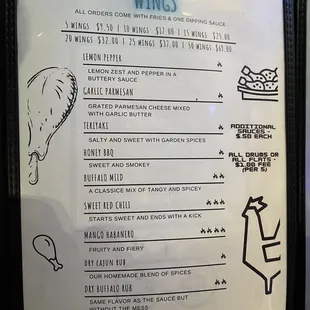 WINGS
ALL ORDERS COME WITH FRIES & ONE DIPPING SAUCE.
5 WINGS $9.50 | 10 WINGS $17.00 | 15 WINGS $25.00
20 WINGS $32.00 | 25 WINGS $37.00 | 50 WINGS $69.00
LEMON PEPPER
LEMON ZEST AND PEPPER IN A
BUTTERY SAUCE
GARLIC PARMESAN
GRATED PARMESAN CHEESE MIXED
WITH GARLIC BUTTER
TERIYAKI
SALTY AND SWEET WITH GARDEN SPICES
HONEY BBQ
SWEET AND SMOKEY
BUFFALO MILD
A CLASSICE MIX OF TANGY AND SPICEY
SWEET RED CHILI
STARTS SWEET AND ENDS WITH A KICK
MANGO HABANERO
FRUITY AND FIERY
DRY CAJUN RUB
OUR HOMEMADE BLEND OF SPICES
DRY BUFFALO RUB
SAME FLAVOR AS THE SAUCE BUT
WITHOUT THE MESS
ADDITIONAL
SAUCES -
$.50 EACH
ALL DRUMS OR
ALL FLATS -
$1.00 FEE
(PER 5)